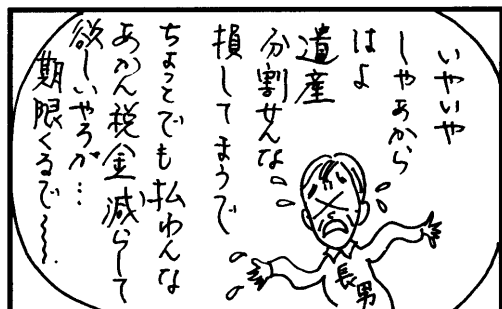 いやいや
しやぁから
はよ
遺産
分割せんな
損してまうで
ちょっとでも払わんな
あかん税金減らして
欲しいやろが…
期限くるで〜〜。
長男